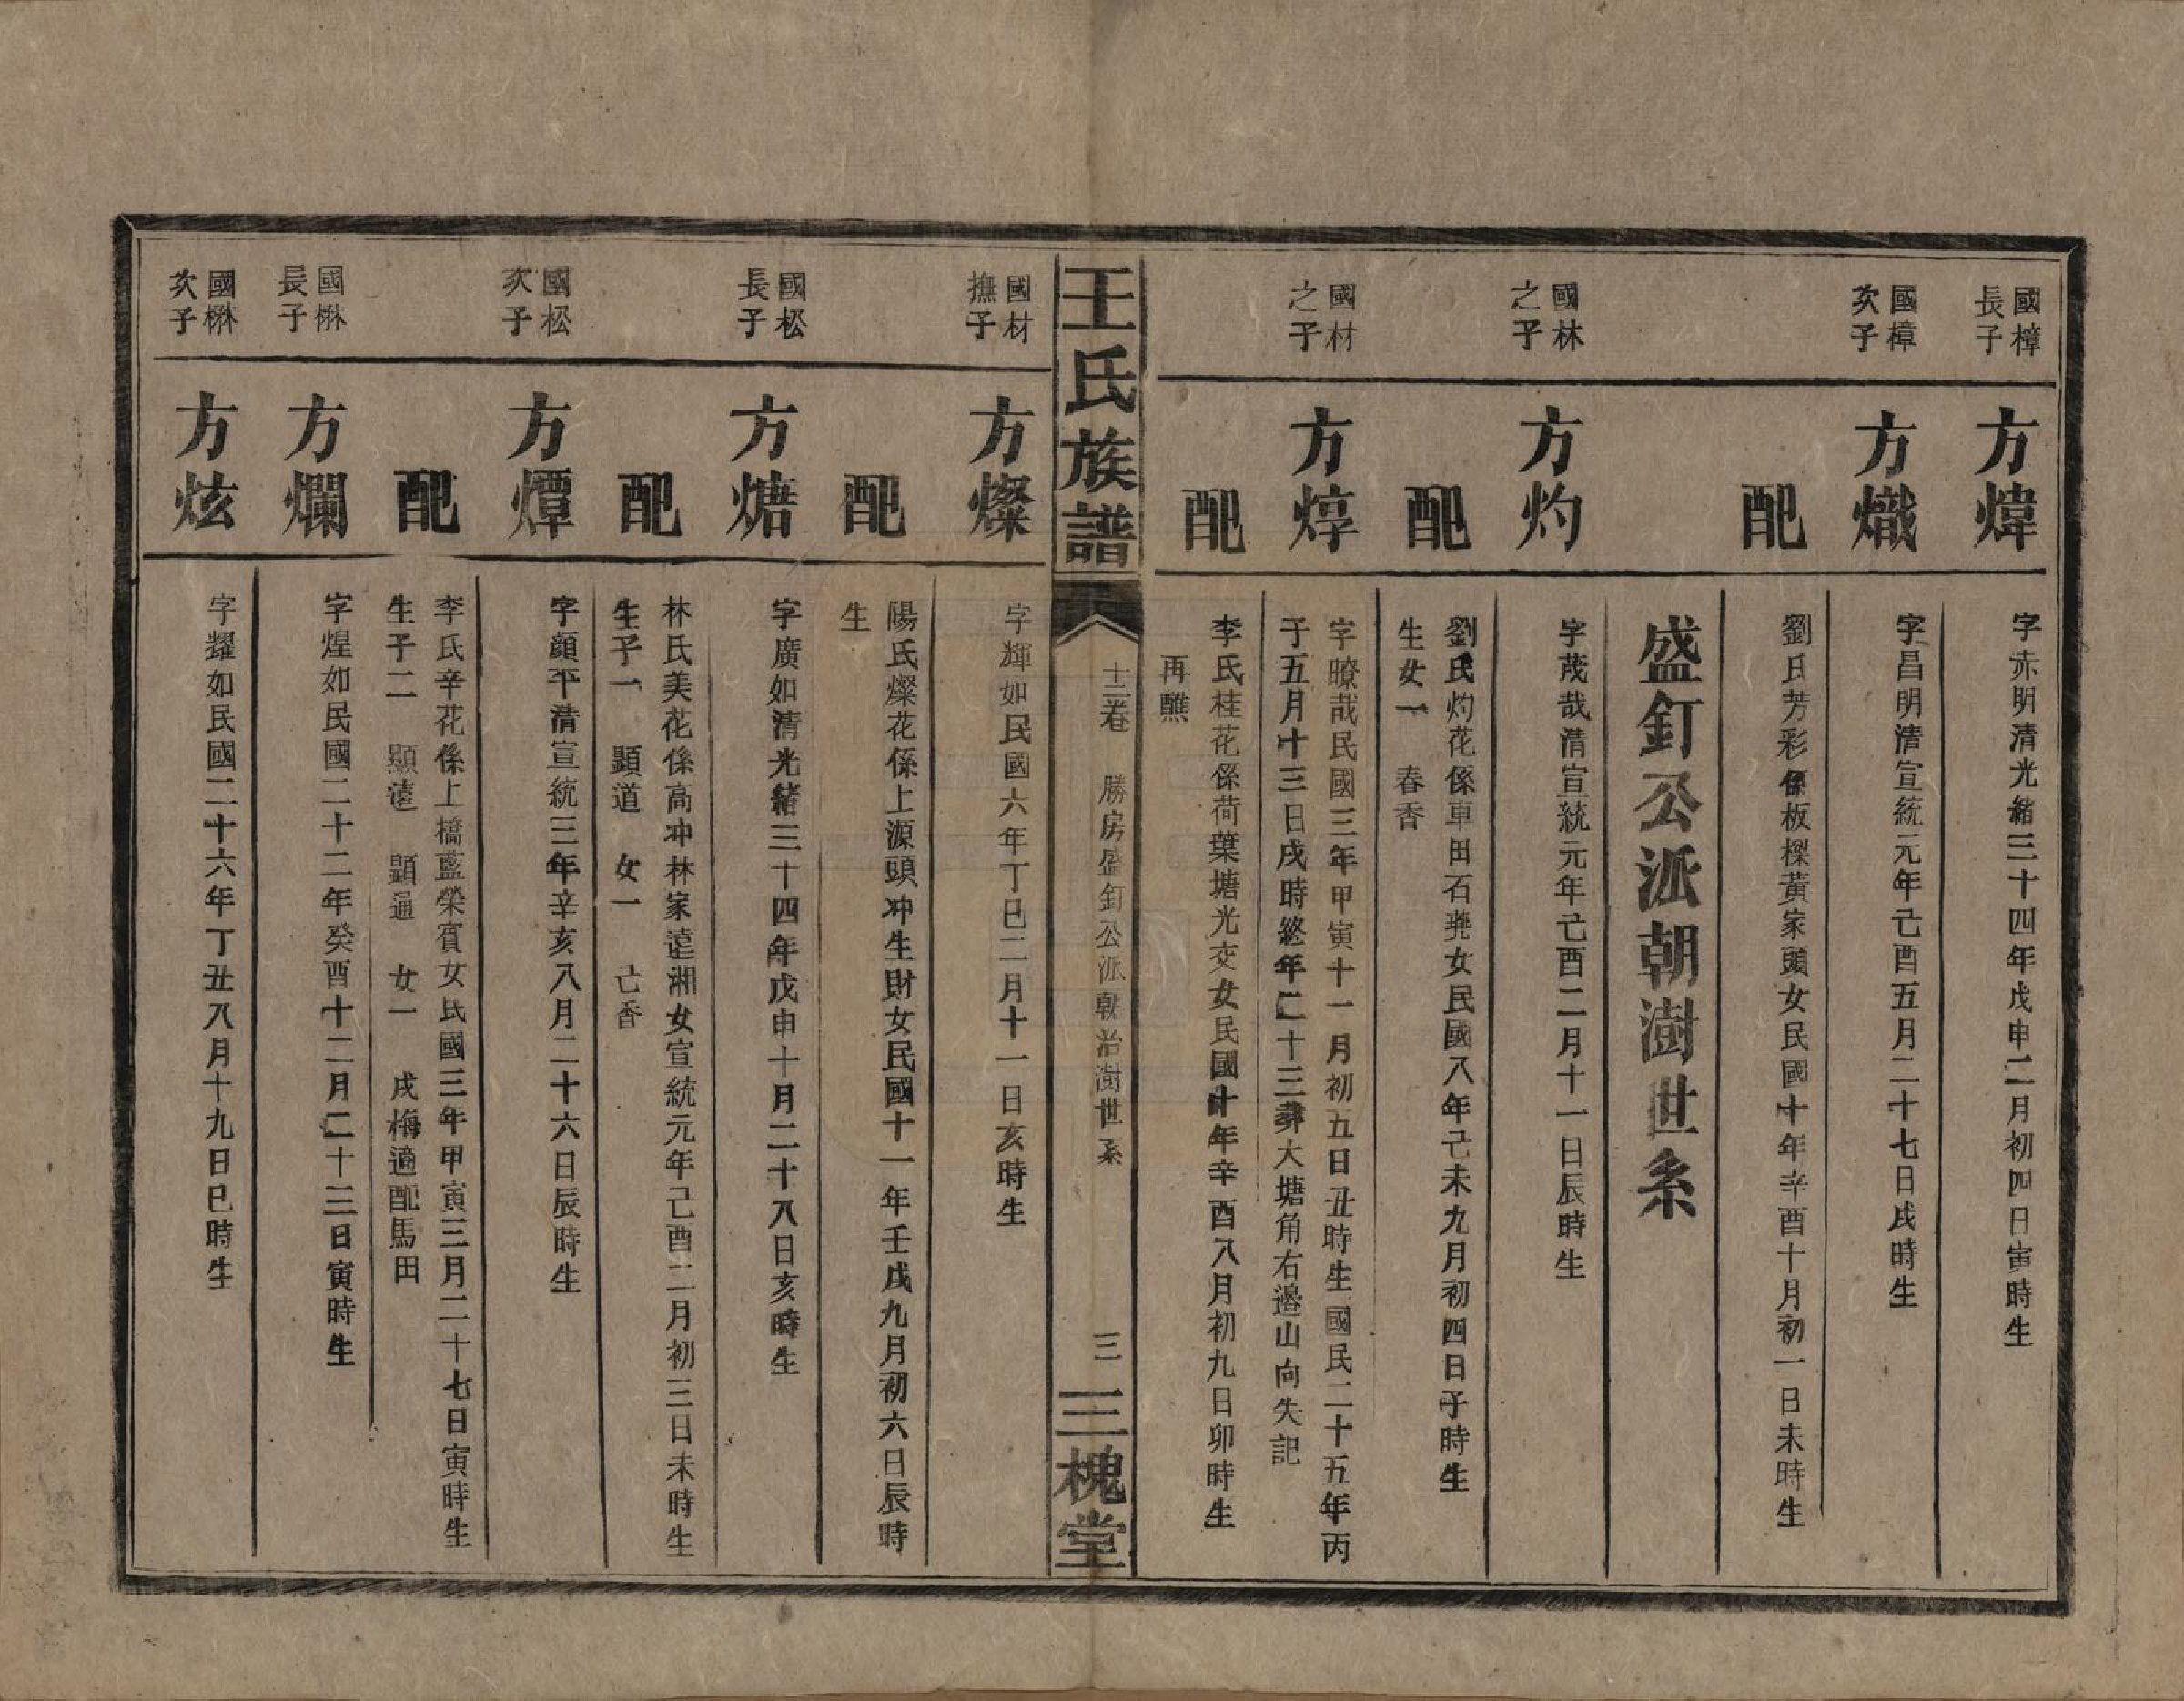 國樟
長子
方煒
字赤明清光緒三十四年戊申二月初四日寅時生
國樟
次子
方熾
字昌明清宣統元年己酉五月二十七日戌時生
配
劉氏芳彩係板樑黃家頭女民國十年辛酉十月初一日未時生
盛釘公派朝澍世系
國林
之子
方灼
字茂哉清宣統元年己酉二月十一日辰時生
配
劉氏灼花係車田石堯女民國八年己未九月初四日子時生
生女一 春香
國材
之子
方焞
字暸哉民國三年甲寅十一月初五日丑時生國民二十五年丙
子五月十三日戌時終年二十三葬大塘角右邊山向失記
配
李氏桂花係荷葉塘光交女民國十年辛酉八月初九日卯時生
再醮
王氏族譜
十三卷 勝房盛釘公派朝治澍世系
三
三槐堂
國材
撫子
方燦
字輝如民國六年丁巳二月十一日亥時生
配
陽氏燦花係上源頭冲生財女民國十一年壬戌九月初六日辰時
生
國松
長子
方煻
字廣如清光緒三十四年戊申十月二十八日亥時生
配
林氏美花係高冲林家遠湘女宣統元年己酉二月初三日未時生
生子一 顯道 女一 己香
國松
次子
方燂
字顏平清宣統三年辛亥八月二十六日辰時生
配
李氏辛花係上橋藍榮賓女民國三年甲寅三月二十七日寅時生
生子二 顯遠 顯通 女一 戌梅適配馬田
國楙
長子
方爛
字煌如民國二十二年癸酉十二月二十三日寅時生
國楙
次子
方炫
字耀如民國二十六年丁丑八月十九日巳時生